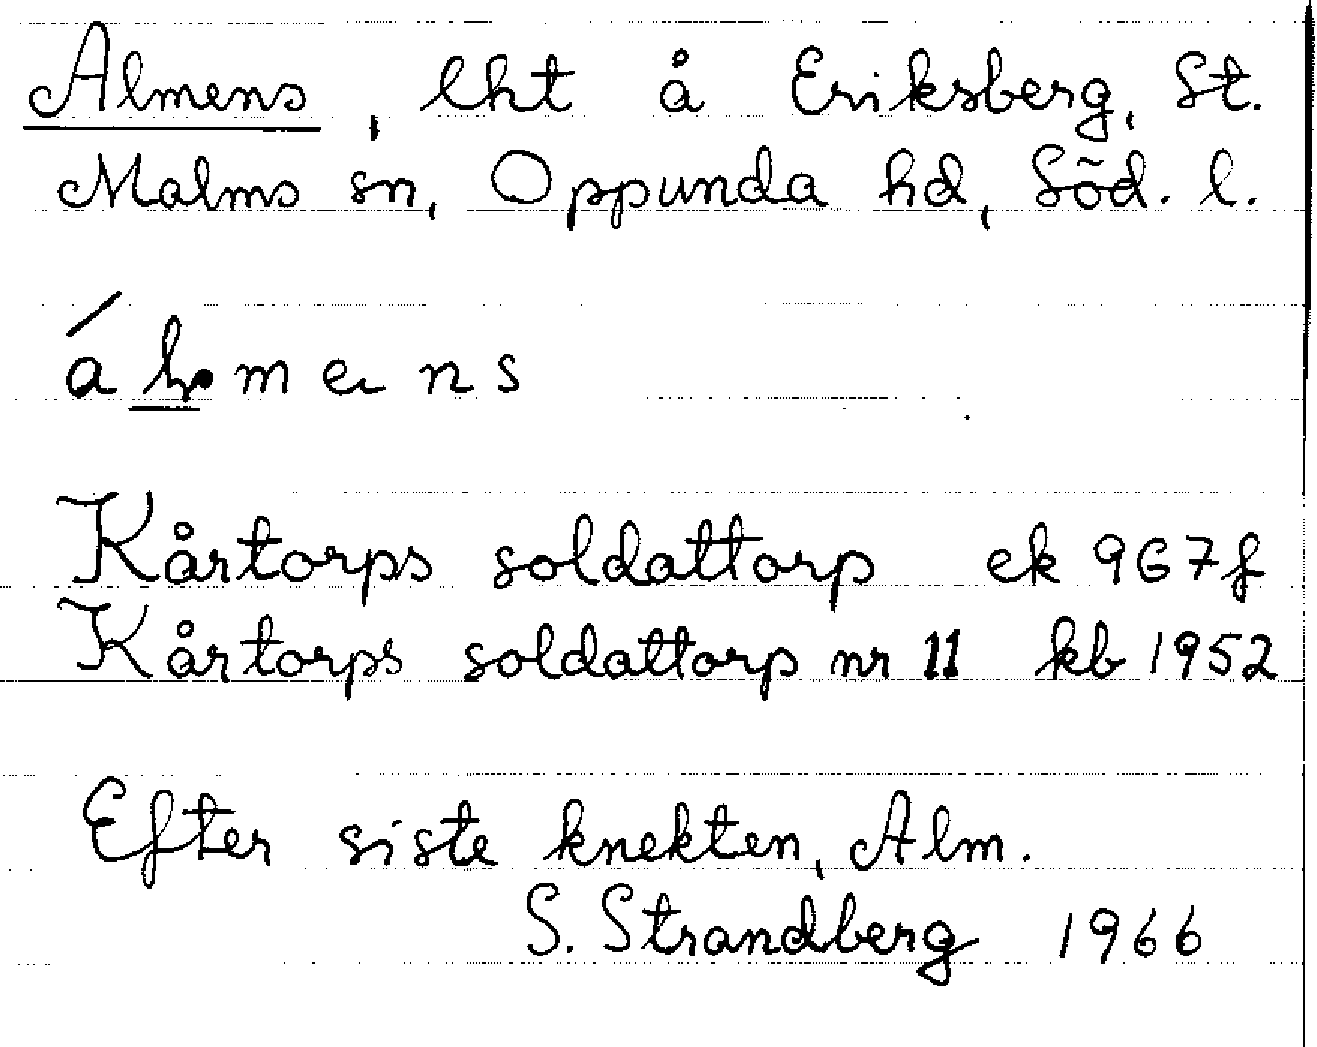 Almens, lht å Eriksberg, St.
Malms sn, Oppunda hd, Söd. l.
Kårtorps soldattorp ek 967f
Kårtorps soldattorp nr 11 kb 1952
Efter siste knekten, Alm.
S. Strandberg 1966